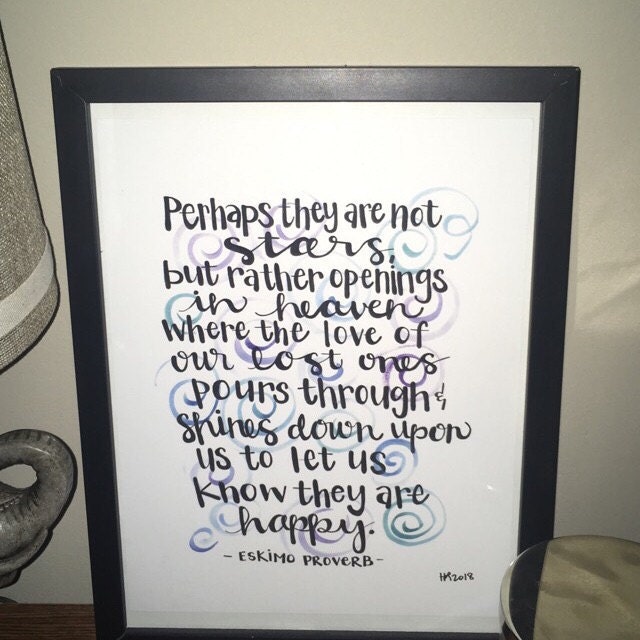 Perhaps they are not
stars,
but rather openings
in heaven
where the love of
our lost ones
pours through &
shines down upon
us to let us
know they are
happy.
- ESKIMO PROVERB -
HR 2018